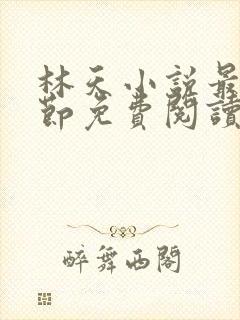 林天小說最
節免費閱讀
醉舞西閣